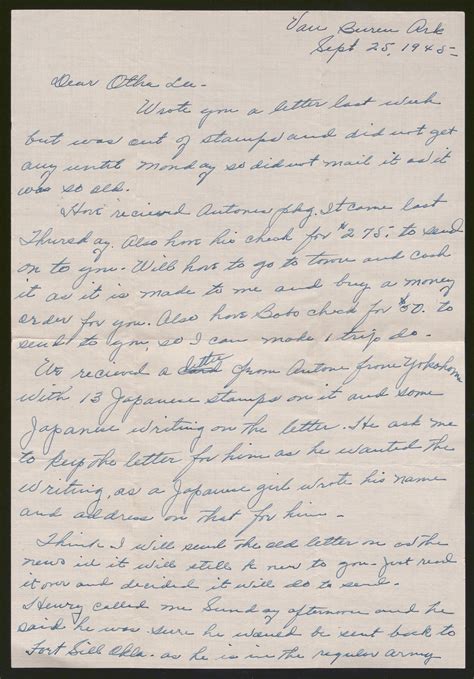 Van Buren Ark
Sept 25, 1945-
Dear Otha Lee-
Wrote you a letter last week
but was out of stamps and did not get
any until Monday so did not mail it as it
was so old.
Have recieved Antones pkg. It came last
Thursday. Also have his check for $275- to send
on to you. Will have to go to town and cash
it as it is made to me and buy a money
order for you. Also have Bobs check for $50. to
send to you, so I can make 1 trip do.
We recieved a letter from Antone from Yokohoma
with 13 Japanese stamps on it and some
Japanese writing on the letter. He ask me
to keep the letter for him as he wanted the
writing, as a Japanese girl wrote his name
and address on that for him-
Think I will send the old letter on as the
news in it will still be new to you- Just read
it over and decided it will do to send.
Henry called me Sunday afternoon and he
said he was sure he would be sent back to
Fort Sill Okla. as he is in the regular army